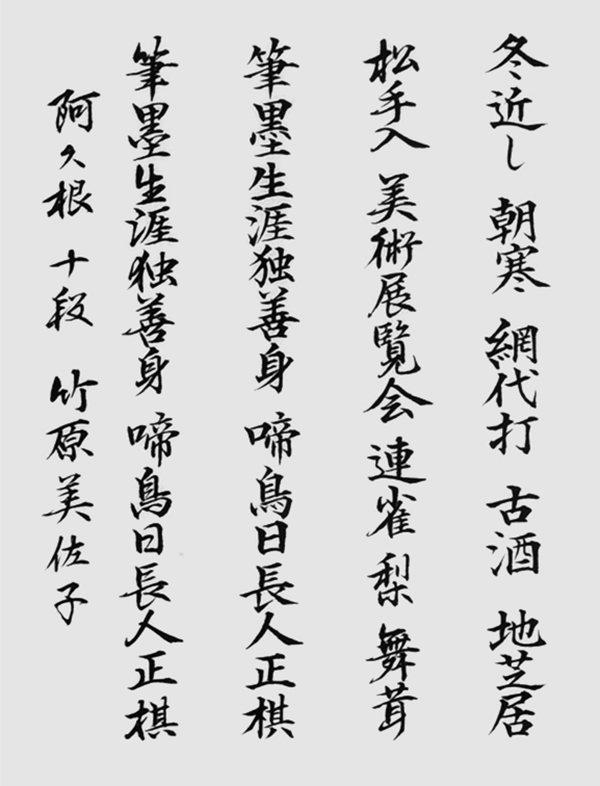 冬近し 朝寒 網代打 古酒 地芝居
松手入 美術展覧会 連雀 梨 舞茸
筆墨生涯独善身 啼鳥日長人正棋
筆墨生涯独善身 啼鳥日長人正棋
阿久根 十段 竹原美佐子